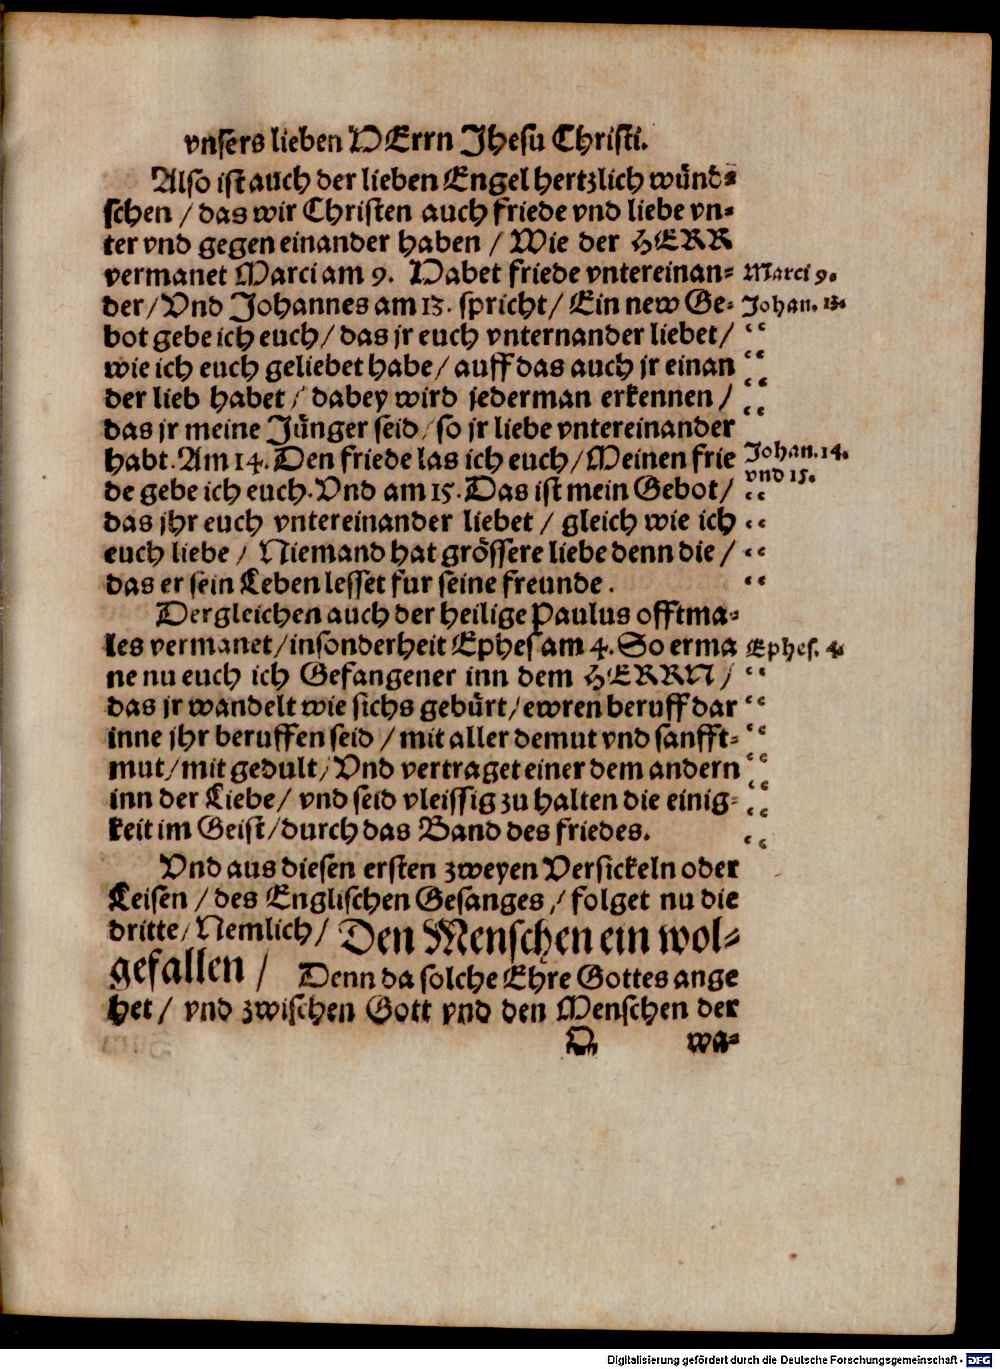 vnsers lieben HErrn Jhesu Christi.
Also ist auch der lieben Engel hertzlich wünd-
schen / das wir Christen auch friede vnd liebe vn-
ter vnd gegen einander haben / Wie der HERR
vermanet Marci am 9. Habet friede vntereinan- Marci 9.
der / Vnd Johannes am 13. spricht / Ein new Ge- Johan. 13.
bot gebe ich euch / das jr euch vnternander liebet /
wie ich euch geliebet habe / auff das auch jr einan
der lieb habet / dabey wird jederman erkennen /
das jr meine Jünger seid / so jr liebe vntereinander
habt. Am 14. Den friede las ich euch / Meinen frie Johan. 14.
vnd 15.
de gebe ich euch. Vnd am 15. Das ist mein Gebot /
das jhr euch vntereinander liebet / gleich wie ich
euch liebe / Niemand hat grössere liebe denn die /
das er sein Leben lesset fur seine freunde.
Dergleichen auch der heilige Paulus offtma-
les vermanet / insonderheit Ephes am 4. So erma Ephes. 4.
ne nu euch ich Gefangener inn dem HERRN /
das jr wandelt wie sichs gebürt / ewren beruff dar
inne jhr beruffen seid / mit aller demut vnd sanfft-
mut / mit gedult / Vnd vertraget einer dem andern
inn der Liebe / vnd seid vleissig zu halten die einig-
keit im Geist / durch das Band des friedes.
Vnd aus diesen ersten zweyen Versickeln oder
Leisen / des Englischen Gesanges / folget nu die
dritte / Nemlich / Den Menschen ein wol-
gefallen / Denn da solche Ehre Gottes ange
het / vnd zwischen Gott vnd den Menschen der
D wa-
Digitalisierung gefördert durch die Deutsche Forschungsgemeinschaft - DFG